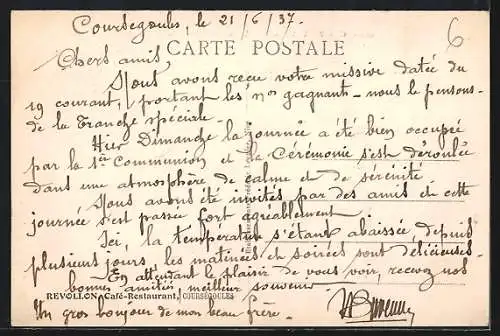 Coursegoules, le 21/6/37.
CARTE POSTALE
6
Chers amis,
Nous avons reçu votre missive datée du
19 courant, portant les nos gagnants - nous le pensons -
de la Tranche spéciale -
Hier Dimanche la journée a été bien occupée
par la 1ère Communion et la Cérémonie s'est déroulée
dans une atmosphère de calme et de sérénité.
Nous avons été invités par des amis et cette
journée s'est passée fort agréablement
Ici, la température s'étant abaissée depuis
plusieurs jours, les matinées et soirées sont délicieuses -
En attendant le plaisir de vous voir, recevez nos
bonnes amitiés, meilleur souvenir
REVOLLON Café-Restaurant, COURSEGOULES
Un gros bonjour de mon beau-frère.